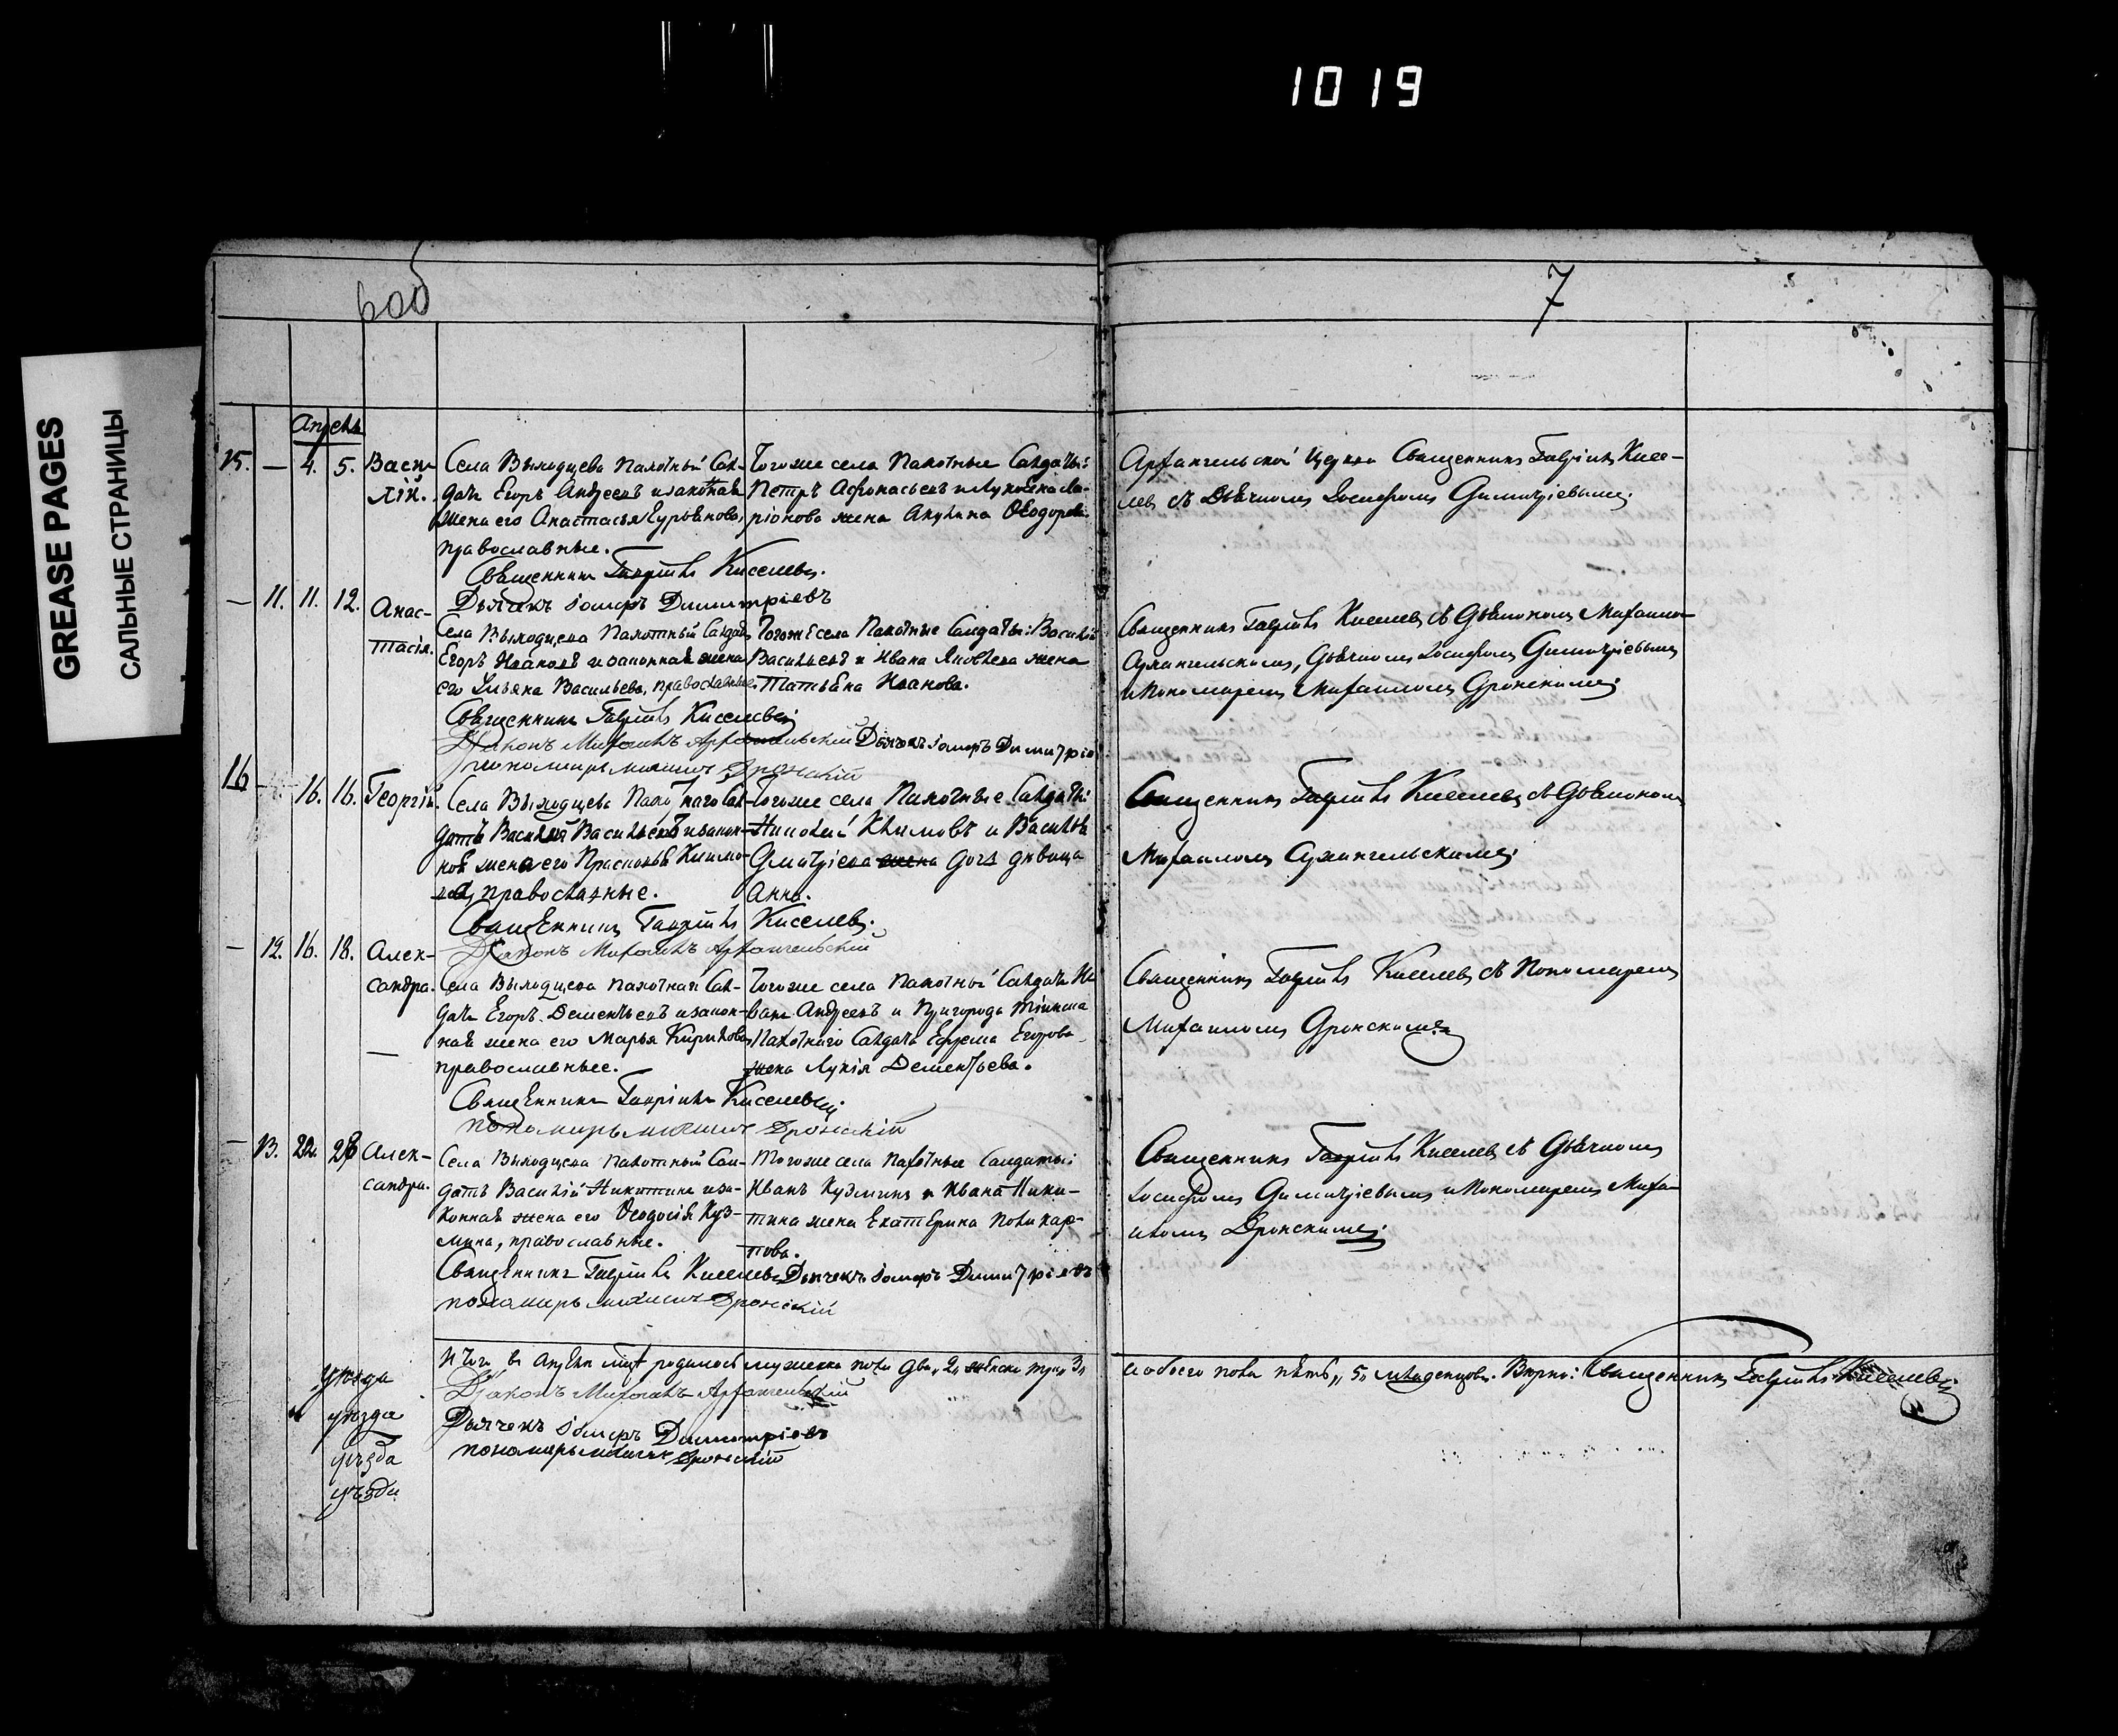 1019
GREASE PAGES
САЛЬНЫЕ СТРАНИЦЫ
7
Апрель
15. — 4. 5. Васи-
лій.
Села Выходцева пахотный Сол-
датъ Егоръ Андреевъ и законная
жена его Анастасья Гурьянова,
православные.
Священникъ Гавріилъ Киселевъ.
Дьячекъ Іосифъ Димитріевъ
Тогоже села пахотные Солдаты:
Петръ Афонасьевъ и Ларіонова жена Акулина Ѳеодорова.
Архангельской Церкви Священникъ Гавріилъ Кисе-
левъ съ Дьячкомъ Іосифомъ Димитріевымъ.
— 11. 11. 12. Анас-
тасія.
Села Выходцева Пахотный Солдатъ
Егоръ Ивановъ и законная жена
его Ульяна Васильева, православные.
Священникъ Гавріилъ Киселевъ
Діаконъ Михаилъ Архангельскій Дьячекъ Іосифъ Димитріевъ
пономарь Михаилъ Дронскій
Тогоже села Пахотные Солдаты: Василій
Васильевъ и Ивана Яковлева жена
Татьяна Иванова.
Священникъ Гавріилъ Киселевъ съ Діакономъ Михаиломъ
Архангельскимъ, Дьячкомъ Іосифомъ Димитріевымъ
и Пономаремъ Михаиломъ Дронскимъ.
16 — 16. 16. Георгій.
Села Выходцева Пахотнаго Сол-
дата Василій Васильевъ и закон-
ная жена его Прасковья Климо-
ва, православные.
Священникъ Гавріилъ Киселевъ.
Діаконъ Михаилъ Архангельскій
Тогоже села Пахотные Солдаты:
Николай Климовъ и Василья
Дмитріева жена дочь дѣвица
Анна.
Священникъ Гавріилъ Киселевъ съ Діакономъ
Михаиломъ Архангельскимъ.
— 12. 16. 18. Алек-
сандра.
Села Выходцева пахотный Сол-
датъ Егоръ Дементьевъ и закон-
ная жена его Марья Кирилова,
православные.
Священникъ Гавріилъ Киселевъ
пономарь Михаилъ Дронскій
Тогоже села Пахотный Солдатъ И-
ванъ Андреевъ и Пригорода Тіинска
Пахотнаго Солдата Ефрема Егорова
жена Лукія Дементьева.
Священникъ Гавріилъ Киселевъ съ Пономаремъ
Михаиломъ Дронскимъ
— 13. 22. 28 Алек-
сандра.
Села Выходцева пахотный Сол-
датъ Василій Никитинъ и за-
конная жена его Ѳеодосія Куз-
мина, православные.
Священникъ Гавріилъ Киселевъ Дьячекъ Іосифъ Димитріевъ
пономарь Михаилъ Дронскій
Тогоже села Пахотные Солдаты:
Иванъ Кузминъ и Ивана Ники-
тина жена Екатерина Поликар-
пова.
Священникъ Гавріилъ Киселевъ съ Дьячкомъ
Іосифомъ Димитріевымъ и Пономаремъ Миха-
иломъ Дронскимъ.
Итого въ Апрѣлѣ родилось мужеска пола два „2„ женска три „3„ и обоего пола пять „5„ младенцовъ. Вѣрно: Священникъ Гавріилъ Киселевъ
Діаконъ Михаилъ Архангельскій
Дьячекъ Іосифъ Димитріевъ
пономарь Михаилъ Дронскій
уѣзда
уѣзда
уѣзда
уѣзда